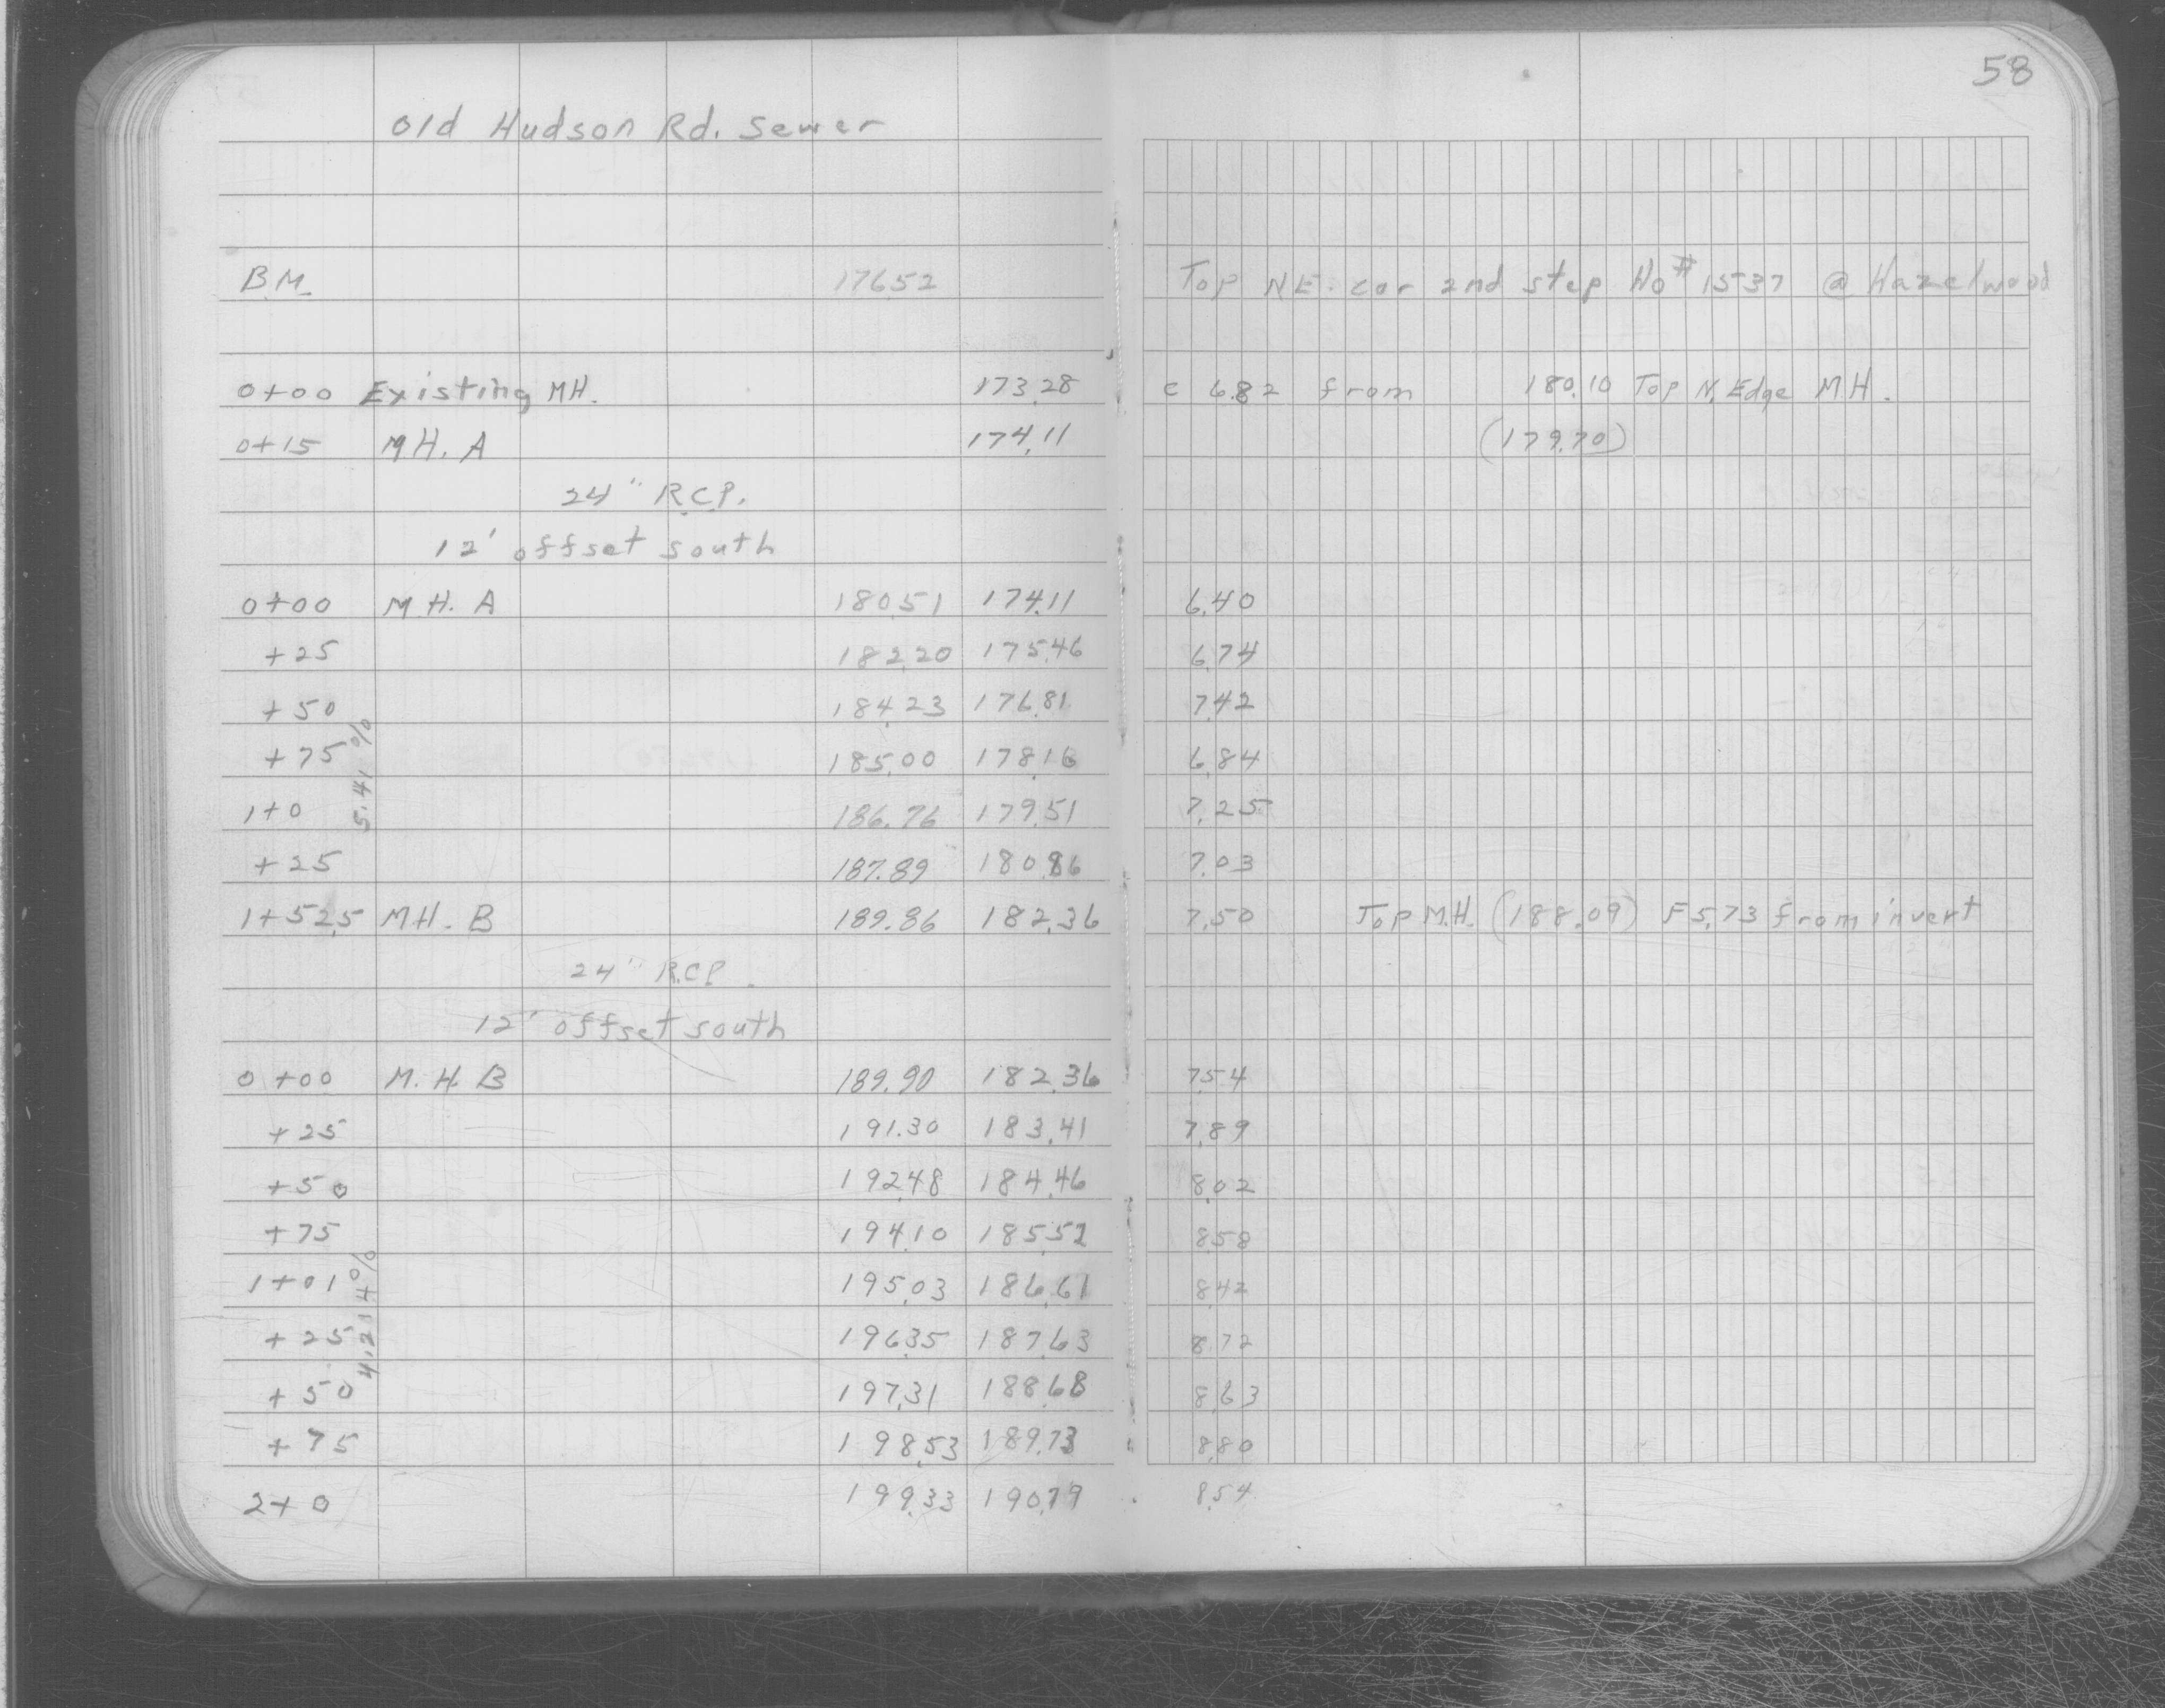 58
Old Hudson Rd. Sewer
B.M. 176.52 Top N.E. cor 2nd step Ho # 1537 @ Hazelwood
0+00 Existing MH. 173.28 c 6.82 from 180.10 Top N. Edge M.H.
0+15 MH. A 174.11 (179.70)
24" R.C.P.
12' offset south
0+00 M.H. A 180.51 174.11 6.40
+25 182.20 175.46 6.74
+50 184.23 176.81 7.42
+75 185.00 178.16 6.84
5.41 %
1+0 186.76 179.51 7.25
+25 187.89 180.86 7.03
1+52.5 MH. B 189.86 182.36 7.50 Top M.H. (188.09) F 5.73 from invert
24" R.C.P.
12' offset south
0+00 M.H. B 189.90 182.36 7.54
+25 191.30 183.41 7.89
+50 192.48 184.46 8.02
+75 194.10 185.52 8.58
1+01 195.03 186.61 8.42
4.214 %
+25 196.35 187.63 8.72
+50 197.31 188.68 8.63
+75 198.53 189.73 8.80
2+0 199.33 190.79 8.54